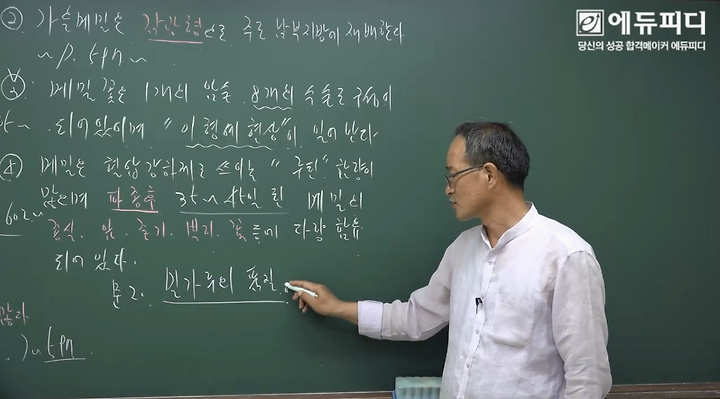 ② 가을메밀은 감광형으로 주로 남부지방에 재배한다
에듀피디
당신의 성공 합격메이커 에듀피디
③ 메밀 꽃은 1개의 암술 8개의 수술로 구성이
되어있으며 "이형예현상"이 일어난다
④ 메밀은 혈압강하제로 쓰이는 "루틴" 함량이
많으며 파종후 35~45일 된 메밀의
602
종실. 잎. 줄기. 뿌리. 꽃 등에 다량 함유
되어 있다.
문2. 밀가루의 품질